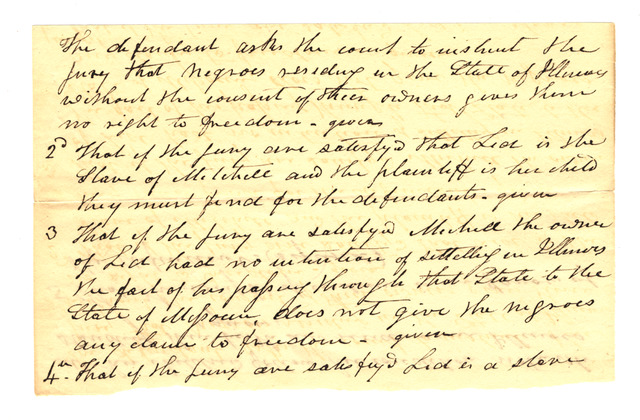 The defendant asks the court to instruct the
jury that negroes residing in the State of Illinois
without the consent of their owners gives them
no right to freedom - given
2d That if the jury are satisfyd that Lid is the
Slave of Mitchell and the plaintiff is her child
they must find for the defendants - given
3 That if the jury are satisfyd Mitchell the owner
of Lid had no intention of settling in Illinois
the fact of his passing through that State to the
State of Missouri, does not give the negroes
any claim to freedom - given
4th That if the jury are satisfyd Lid is a slave